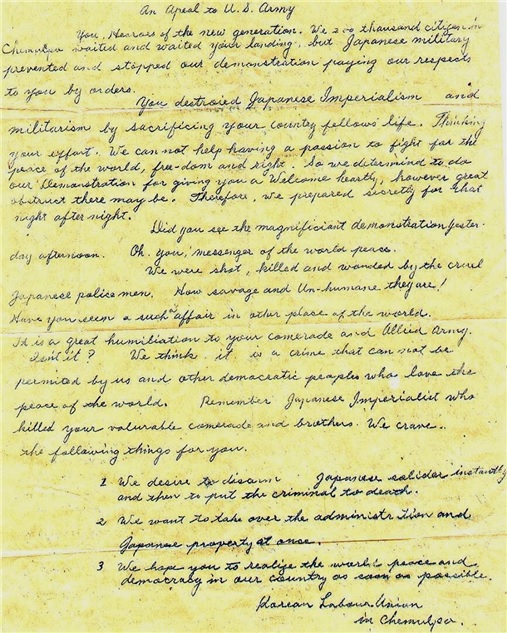 An Apeal to U. S. Army
You, Hearoes of the new generation. We 200 thousand citizen in
Chemulpo waited and waited your landing, but Japanese military
prevented and stopped our demonstration paying our respects
to you by orders.
You destroied Japanese Imperialism and
militarism by sacrificing your country fellows' life. Thinking
your effort. We can not help having a passion to fight for the
peace of the world, free-dom and right. So we determind to do
our Demonstration for giving you a Welcome heartly, however great
obstruct there may be. Therefore, we prepared secretly for that
night after night.
Did you see the magnificiant demonstration yester-
day afternoon. Oh. you, messenger of the world peace.
We were shot, killed and wonded by the cruel
Japanese police men. How savage and Un-humane they are!
Have you seem a such affair in other place of the world.
It is a great humiliation to your comerade and Allied Army.
Isn't it? We think it is a crime that can not be
permited by us and other democratic peoples who love the
peace of the world. Remember Japanese Imperialist who
killed your valurable comerade and brothers. We crave
the following things for you.
1 We desire to disarm Japanese solider instantly
and then to put the criminal to death.
2 We want to take over the administration and
Japanese property at once.
3 We hope you to realize the world peace and
democracy in our country as soon as possible.
Korean Labour Union
in Chemulpo.